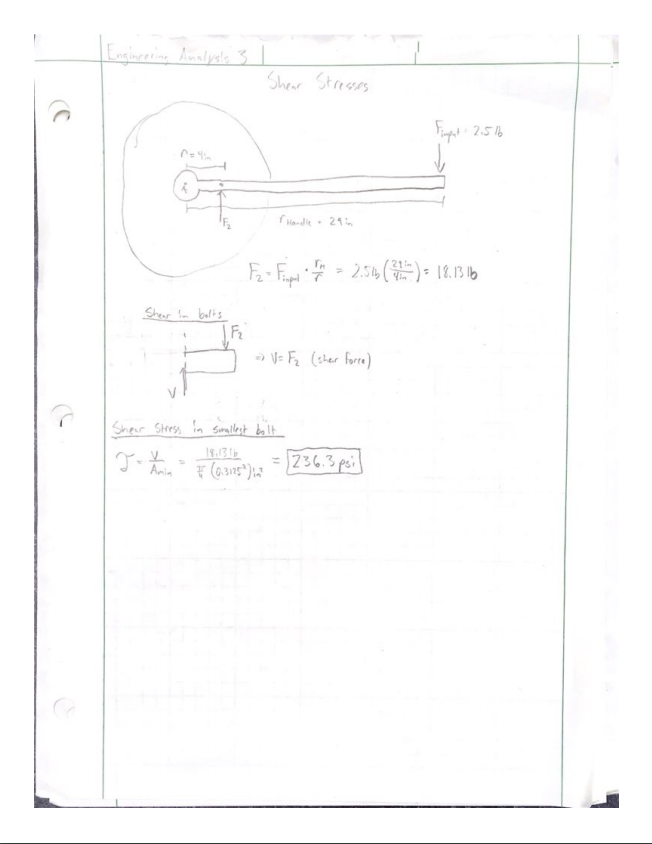 Engineering Analysis 3
Shear Stresses
F_input = 2.5 lb
r = 4in
F₂
r_Handle = 29 in
F₂ = F_input · r_H/r = 2.5lb (29in/4in) = 18.13 lb
Shear in bolts
F₂
⇒ V = F₂ (shear force)
V
Shear Stress in smallest bolt
τ = V/A_min = 18.13 lb/(π/4 (0.3125²)in²) = 236.3 psi